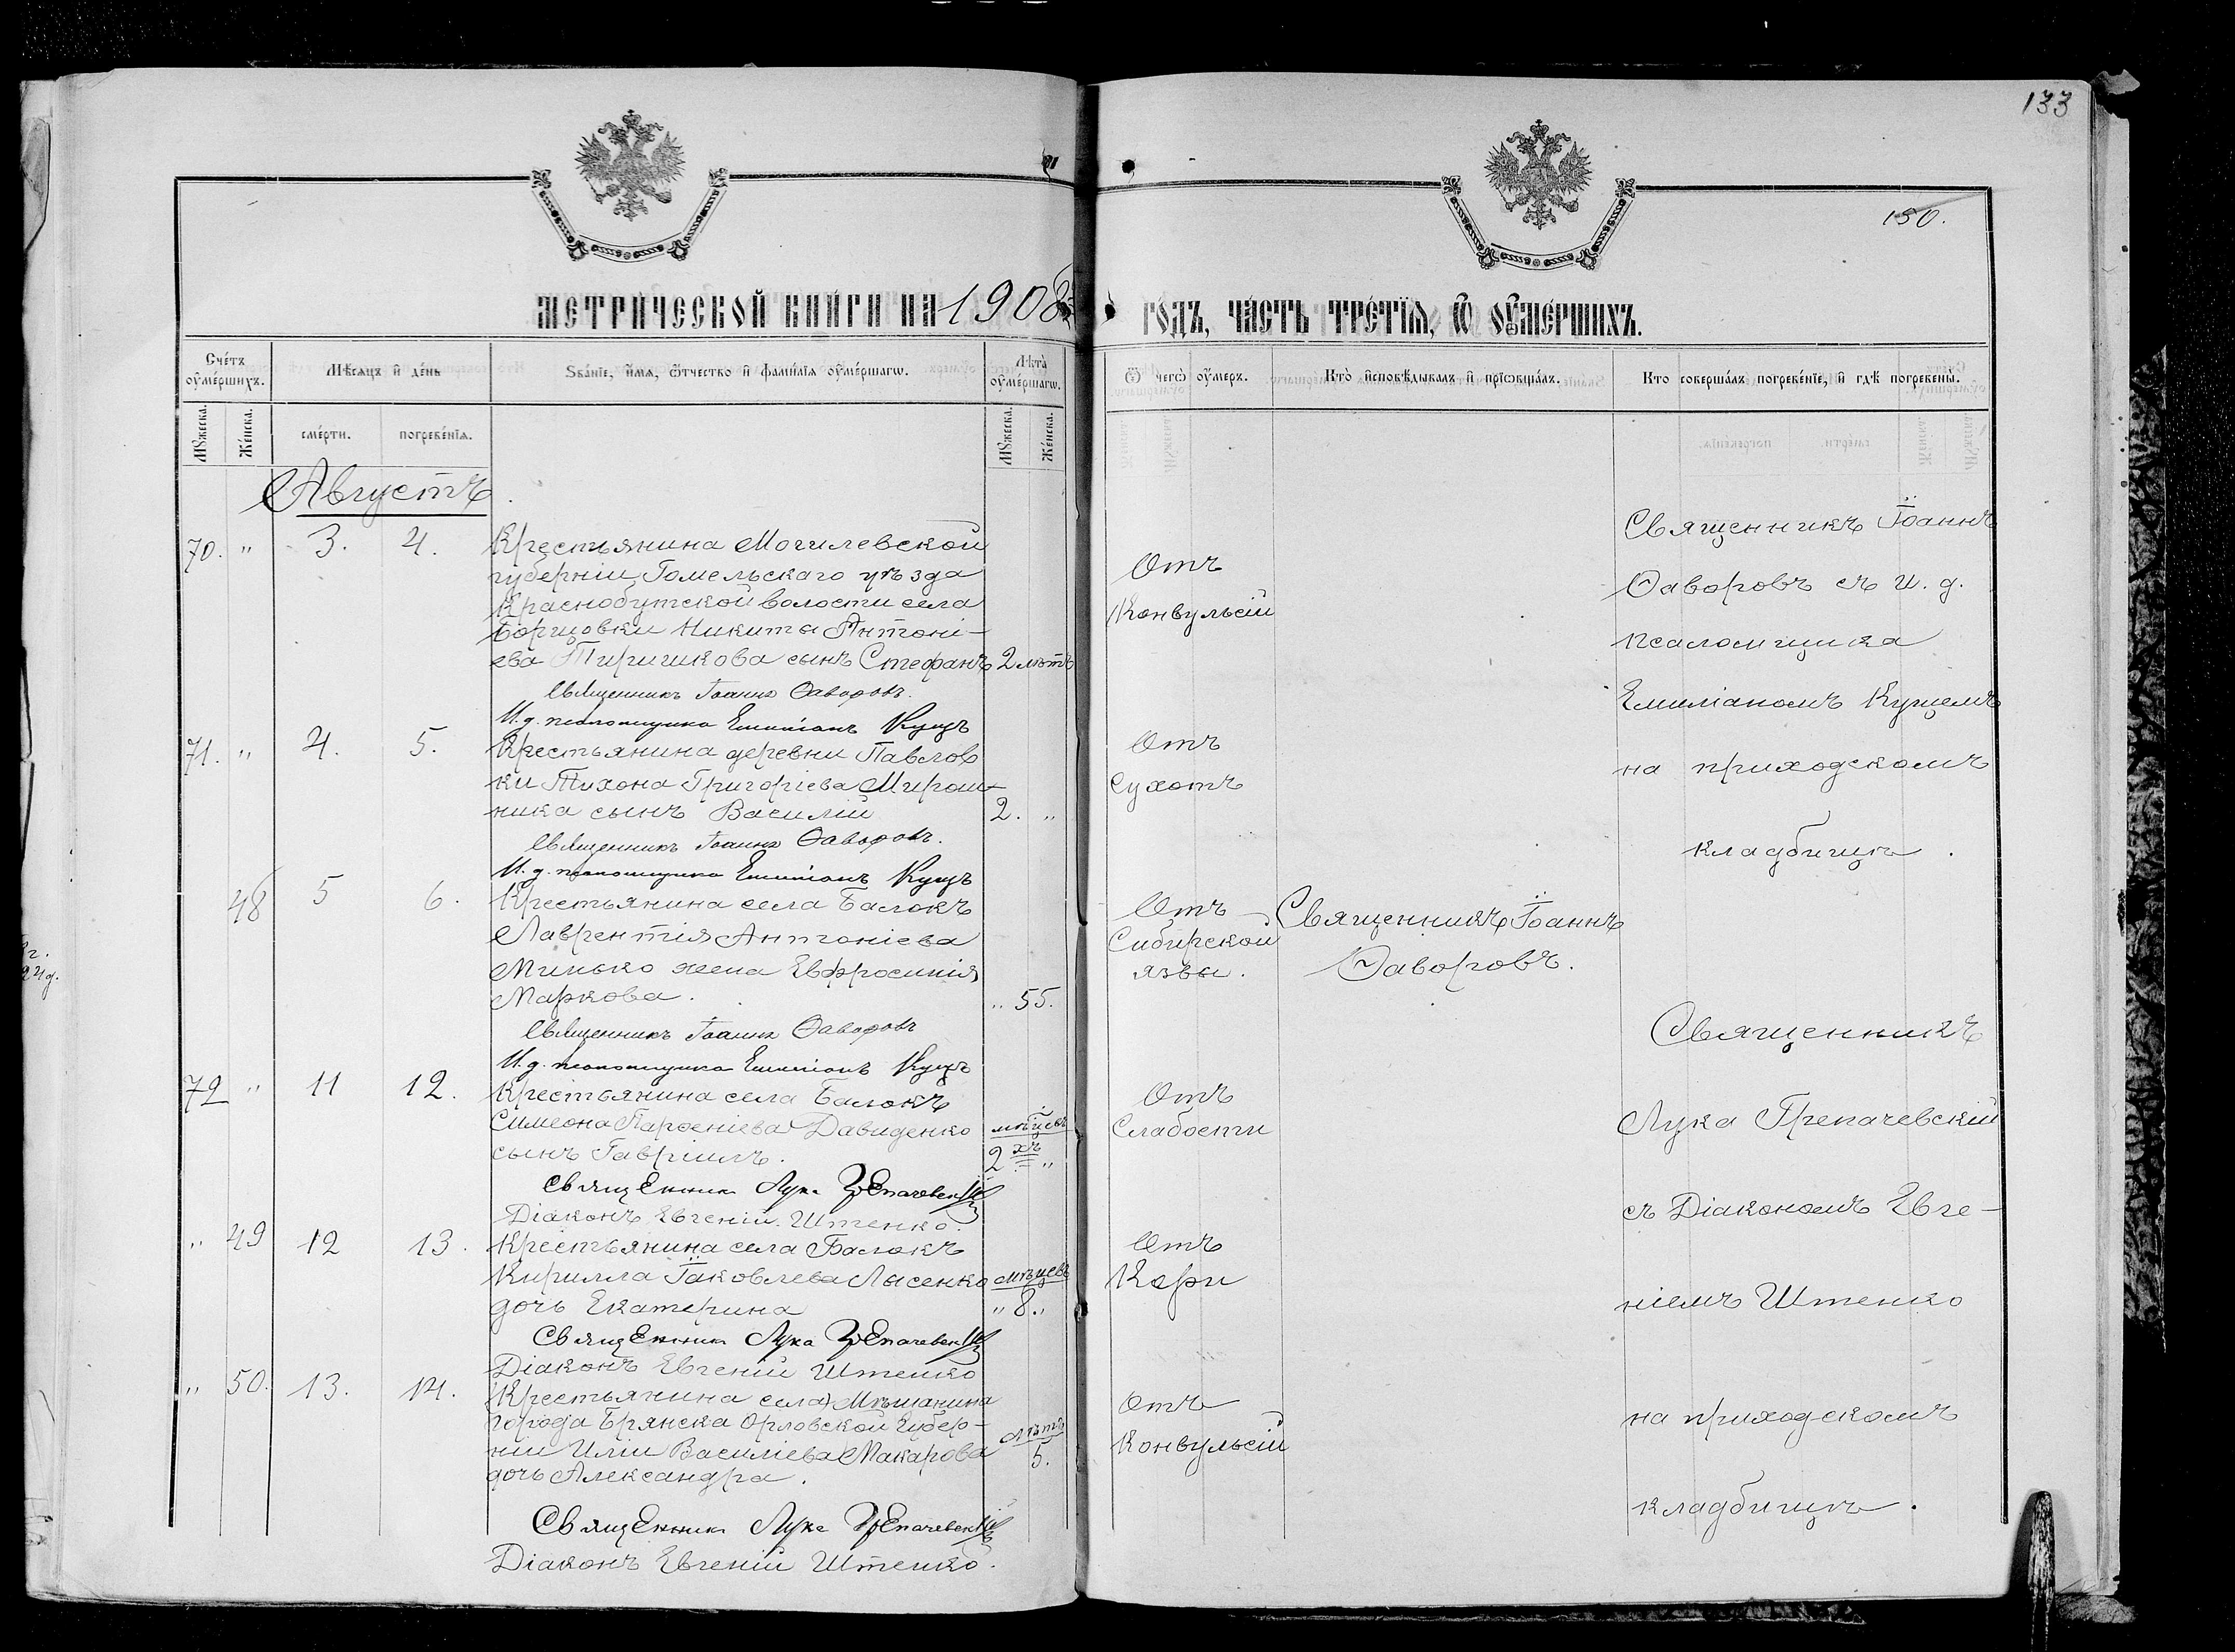 133
150.
МЕТРИЧЕСКОЙ КНИГИ НА 1908 ГОДЪ, ЧАСТЬ ТРЕТІЯ, Ѿ ОУМЕРШИХЪ.
Счетъ оумершихъ.
Мѣсяцъ и день
Званіе, имя, ѿчество и фамилія оумершагѡ.
Лѣта оумершагѡ.
Ѿ чегѡ оумеръ.
Кто исповѣдывалъ и пріѡбщалъ.
Кто совершалъ погребеніе, и гдѣ погребены.
Мужеска.
Женска.
смерти.
погребенія.
Мужеска.
Женска.
Августъ
70. " 3. 4.
Крестьянина Могилевской
губерніи Гомельскаго уѣзда
Краснобутской волости села
Борщовки Никита Антоні-
ева Тиришкова сынъ Стефанъ 2 лѣтъ
Священникъ Іоаннъ Ѳаворовъ.
И. д. псаломщика Емиліанъ Кущъ
Отъ
Конвульсій
Священникъ Іоаннъ
Ѳаворовъ съ и. д.
псаломщика
Емиліаномъ Кущемъ
на приходскомъ
кладбищѣ.
71. " 4. 5.
Крестьянина деревни Павлов
ки Тихона Григоріева Мирош-
ника сынъ Василій 2. "
Священникъ Іоаннъ Ѳаворовъ.
И. д. псаломщика Емиліанъ Кущъ
Отъ
Сухотъ
48 5 6.
Крестьянина села Балокъ
Лаврентія Антоніева
Минько жена Евфросинія
Маркова. " 55.
Священникъ Іоаннъ Ѳаворовъ
И. д. псаломщика Емиліанъ Кущъ
Отъ
Сибирской
язвы.
Священникъ Іоаннъ
Ѳаворовъ.
72 " 11 12.
Крестьянина села Балокъ
Симеона Парѳеніева Давиденко
сынъ Гавріилъ. 2 "
Священникъ Лука Грепачевскій
Діаконъ Евгеній Штенко.
Отъ
Слабости
Священникъ
Лука Грепачевскій
съ Діакономъ Евге-
ніемъ Штенко
на приходскомъ
кладбищѣ.
" 49 12 13.
Крестьянина села Балокъ
Кирилла Іаковлева Лысенко мѣцевъ
дочь Екатерина " 8. "
Священникъ Лука Грепачевскій
Діаконъ Евгеній Штенко
Отъ
Кори
" 50. 13. 14.
(Крестьянина села) Мѣщанина
города Брянска Орловской Губер-
ніи Иліи Василіева Макарова Лѣтъ
дочь Александра. 5.
Священникъ Лука Грепачевскій
Діаконъ Евгеній Штенко.
Отъ
Конвульсій